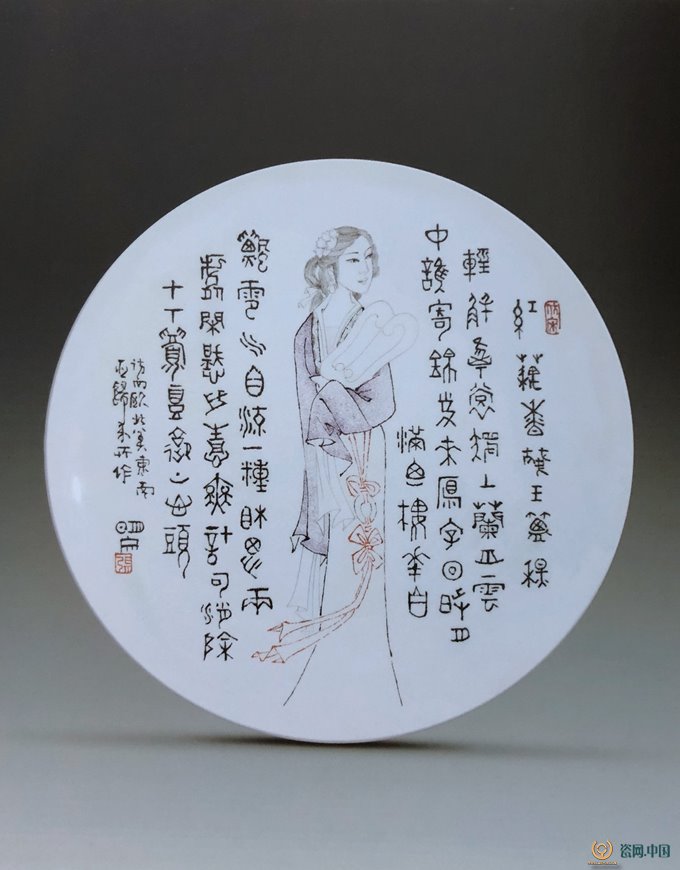 紅藕香殘玉簟秋
輕解羅裳獨上蘭舟雲
中誰寄錦書來雁字回時月
滿西樓花自
飄零水自流一種相思兩
處閑愁此情無計可消除
才下眉頭卻上心頭
訪西歐北美東南
亞歸來所作
張
瓷网.中国